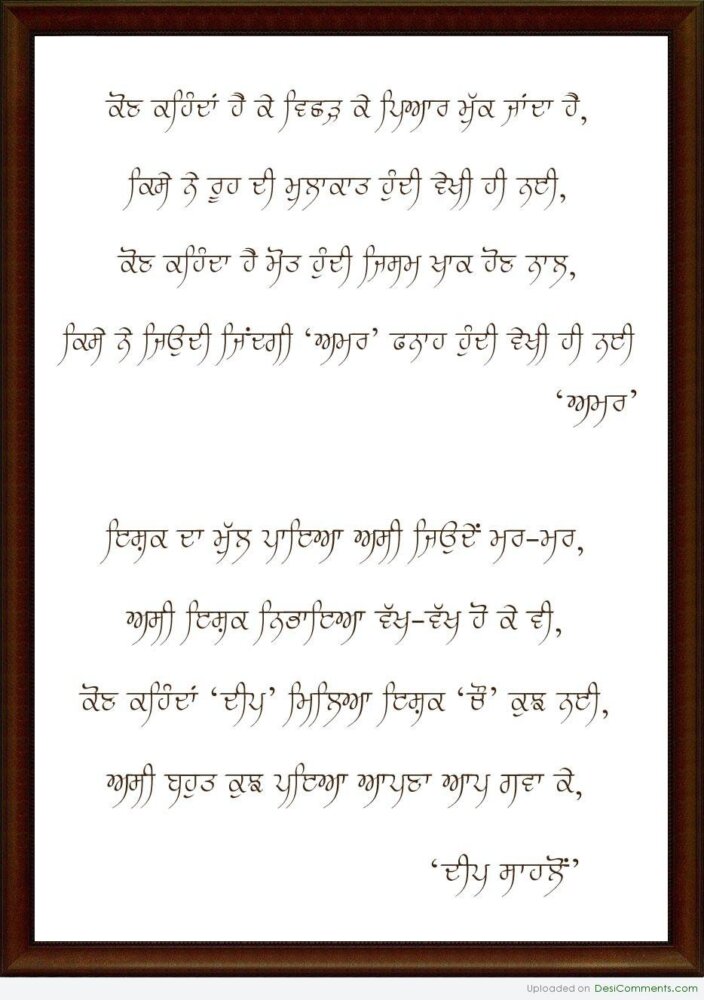 ਕੋਣ ਕਹਿੰਦਾਂ ਹੈ ਕੇ ਵਿਛੜ ਕੇ ਪਿਆਰ ਮੁੱਕ ਜਾਂਦਾ ਹੈ,
ਕਿਸੇ ਨੇ ਰੂਹ ਦੀ ਮੁਲਾਕਾਤ ਹੁੰਦੀ ਵੇਖੀ ਹੀ ਨਈ,
ਕੋਣ ਕਹਿੰਦਾ ਹੈ ਮੋਤ ਹੁੰਦੀ ਜਿਸਮ ਖਾਕ ਹੋਣ ਨਾਲ,
ਕਿਸੇ ਨੇ ਜਿਉਦੀ ਜਿੰਦਗੀ ‘ਅਮਰ’ ਫਨਾਹ ਹੁੰਦੀ ਵੇਖੀ ਹੀ ਨਈ
‘ਅਮਰ’
ਇਸ਼ਕ ਦਾ ਮੁੱਲ ਪਾਇਆ ਅਸੀ ਜਿਉਦੇਂ ਮਰ-ਮਰ,
ਅਸੀ ਇਸ਼ਕ ਨਿਭਾਇਆ ਵੱਖ-ਵੱਖ ਹੋ ਕੇ ਵੀ,
ਕੋਣ ਕਹਿੰਦਾਂ ‘ਦੀਪ’ ਮਿਲਿਆ ਇਸ਼ਕ ‘ਚੌ’ ਕੁਝ ਨਈ,
ਅਸੀ ਬਹੁਤ ਕੁਝ ਪਇਆ ਆਪਣਾ ਆਪ ਗਵਾ ਕੇ,
‘ਦੀਪ ਸਾਹਲੋਂ’
Uploaded on DesiComments.com